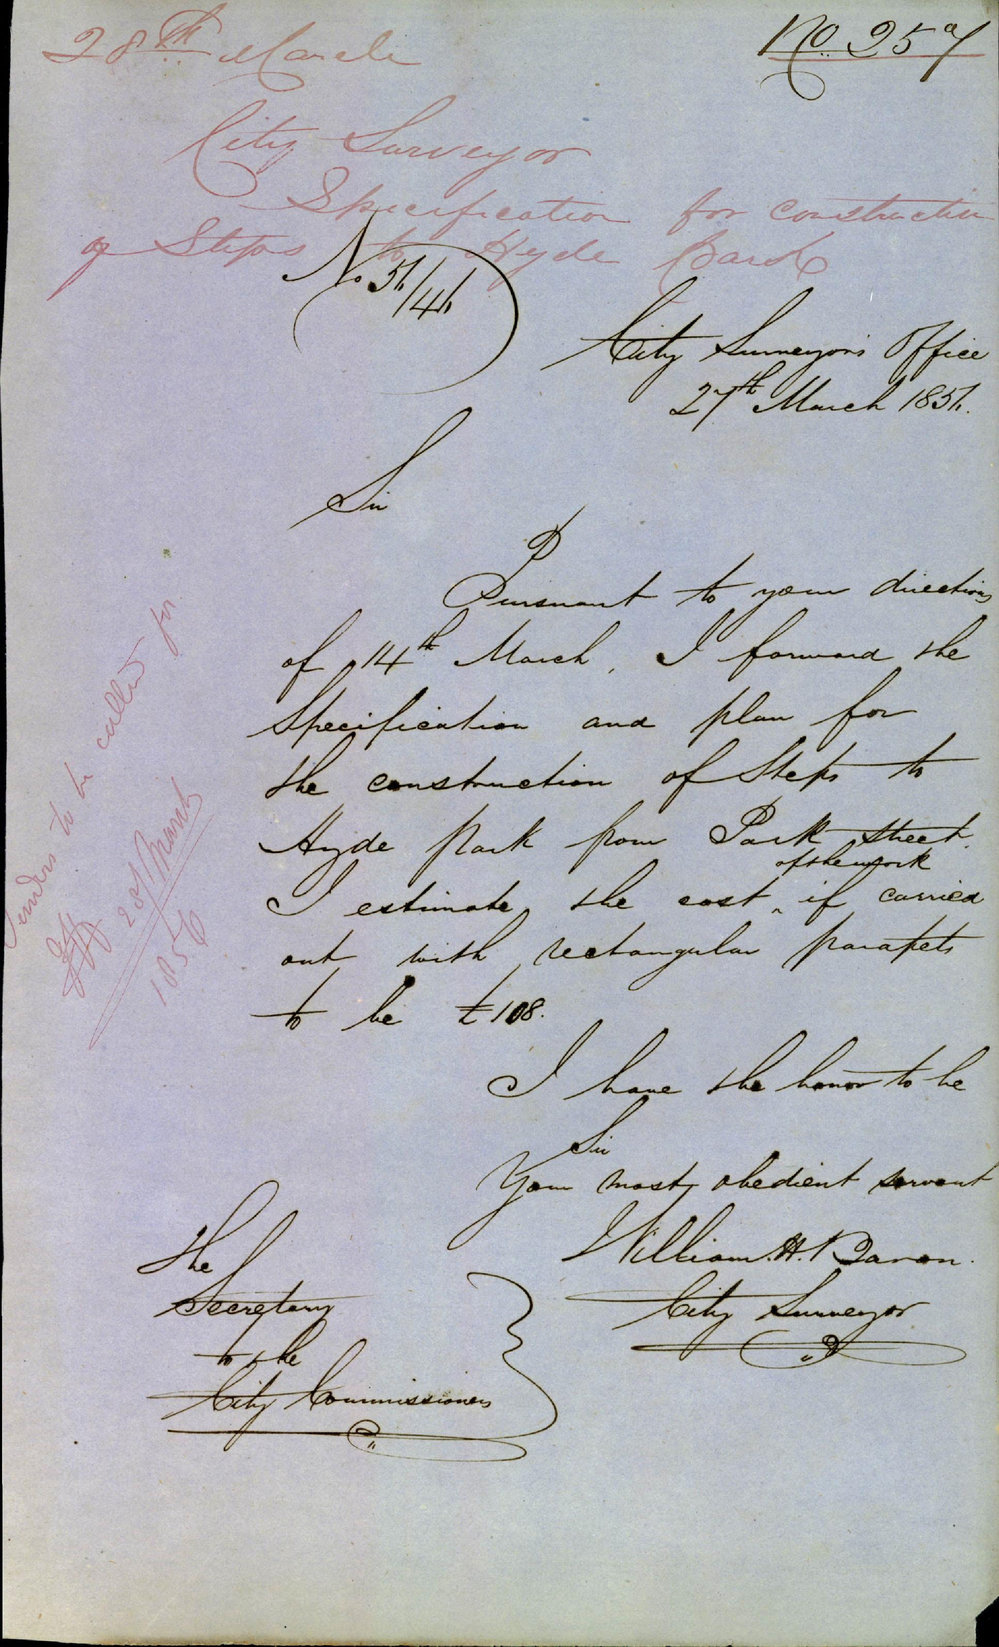 28th March
No. 257
City Surveyor
Specification for construction
of Steps to Hyde Park
No 56/46
City Surveyor's Office
27th March 1856.
Sir
Pursuant to your directions
of 14th March, I forward the
Specification and plan for
the construction of Steps to
Hyde park from Park Street.
of the work
I estimate the cost ‸ if carried
out with rectangular parapets
to be £108.
I have the honor to be
Sir
Your most obedient servant
William. H. Baron.
City Surveyor
The
Secretary
to the
City Commissioners
Tenders to be called for
28 March
1856